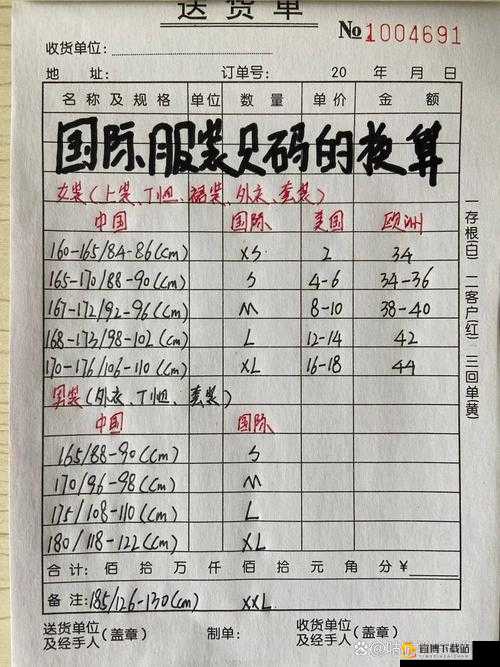 送货单
№1004691
收货单位:
地 址: 订单号: 20 年 月 日
名称及规格 单位 数量 单价 金额
国际服装尺码的换算
女装(上装、T恤、裙装、外衣、套装)
中国 国际 美国 欧洲
160-165/84-86(cm) XS 2 34
165-170/88-90(cm) S 4-6 34-36
167-172/92-96(cm) M 8-10 38-40
168-173/98-102(cm) L 12-14 42
170-176/106-110(cm) XL 16-18 44
男装(外衣、T恤、套装)
中国 国际
165/88-90(cm) S
170/96-98(cm) M
175/108-110(cm) L
180/118-122(cm) XL
合计: 佰 拾 万 仟 佰 拾 元 角 分 ¥
备注: 185/126-130(cm) XXL
送货单位及经手人(盖章) 制单: 收货单位及经手人(盖章)
一存根(白) 二客户红) 三回单(黄)
下载站